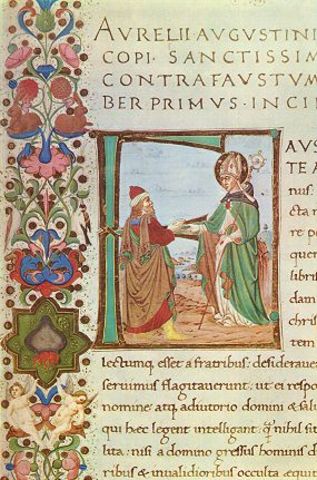 AVRELII·AVGVSTINI
COPI·SANCTISSIM
CONTRAFAVSTVM
BERPRIMVS·INCI
AVS
TE A
nus:
cta n
re: p
quen
libris
dam
chris
tem
lectumq; esset a fratribus: desideraue
seruimus flagitauerunt: ut ei respo
nomine: atq; adiutorio domini & salu
qui haec legent intelligant: q̃ nihil sit
lita: nisi a domino gressus hominis d
ribus & inualidioribus occulta aequit